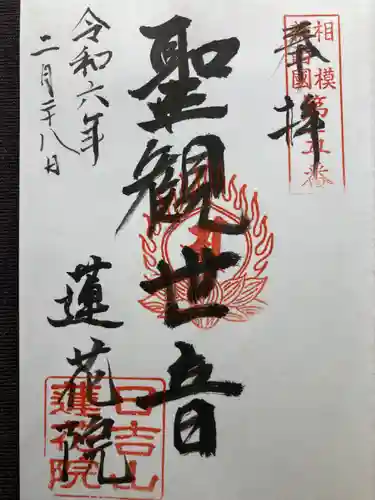 奉拝
相模國第十五番
聖観世音
令和六年
二月二十八日
蓮花院
日吉山
蓮花院